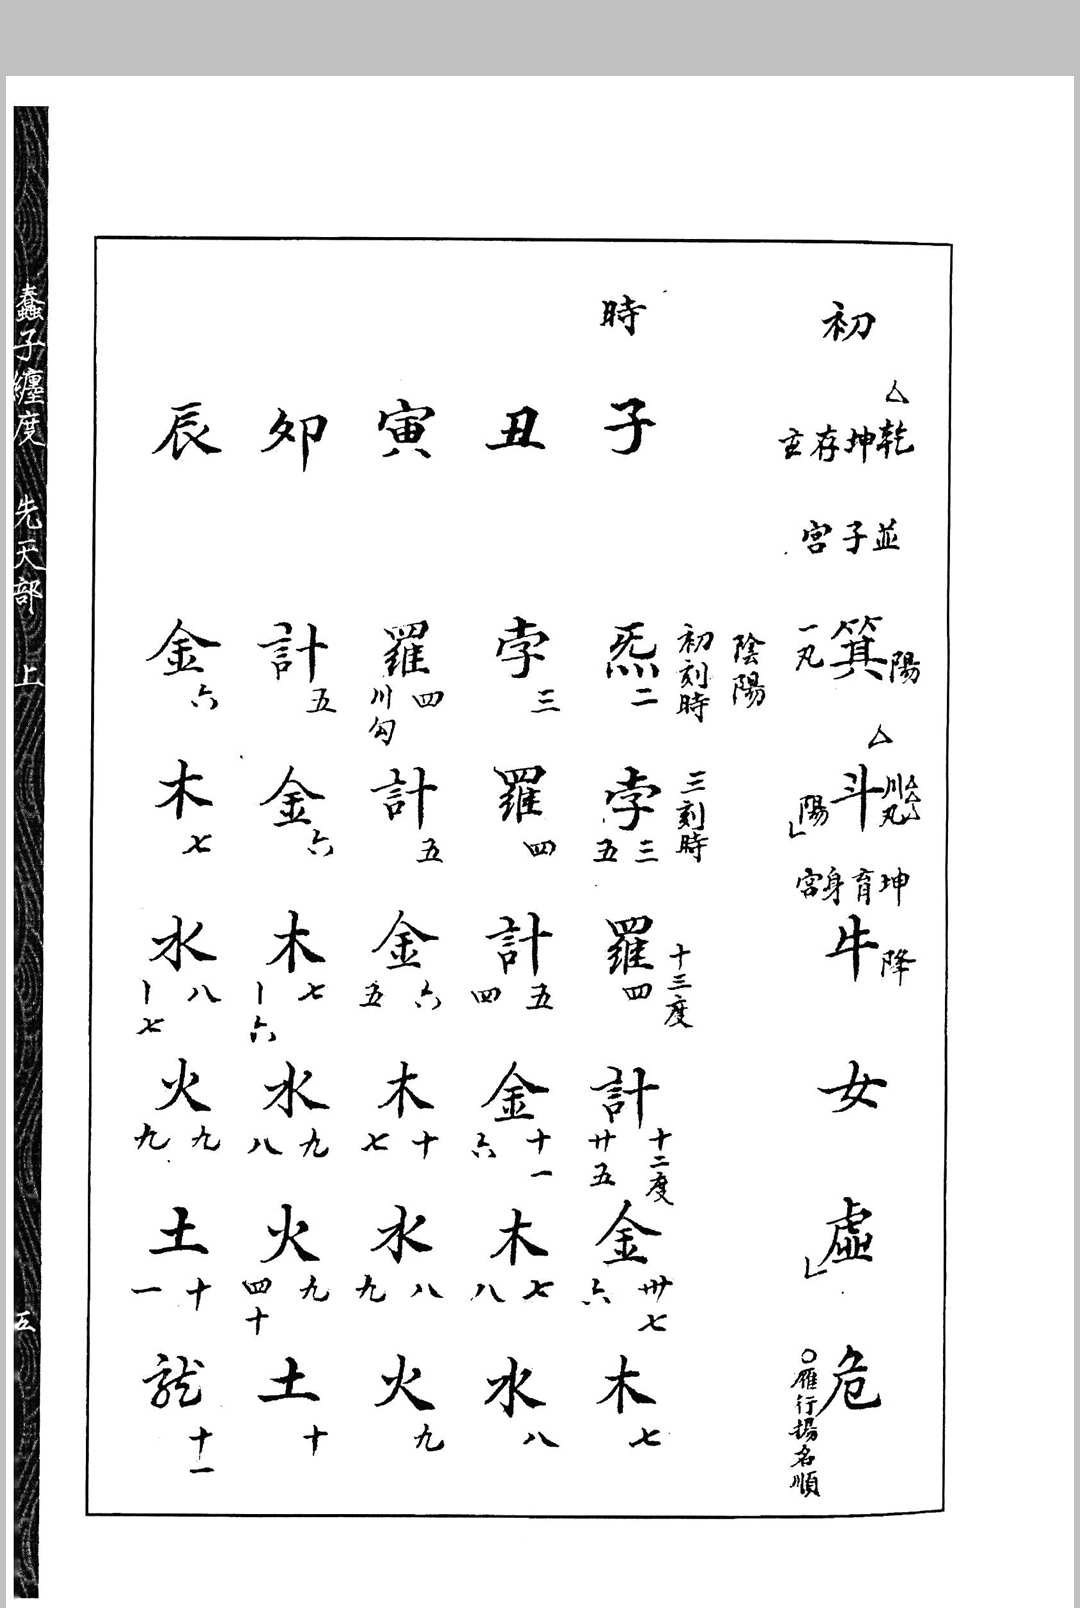 初
△
乾坤存玄
並子宮
陽
箕
一丸
△
川丸
斗
陽
坤育身宮
降
牛
女
虛
危
○雁行揚名順
陰陽
初刻時
三刻時
十三度
十二度
時
子
炁
二
孛
三
五
羅
四
計
廿五
金
卅七
六
木
七
丑
孛
三
羅
四
計
五
四
金
十一
六
木
七
八
水
八
寅
羅
四
川勾
計
五
金
六
五
木
十
七
水
八
九
火
九
卯
計
五
金
六
木
七
六
水
九
八
火
九
四十
土
十
辰
金
六
木
七
水
八
七
火
九
九
土
十
一
十一
蠢子纏度 先天部 上
五